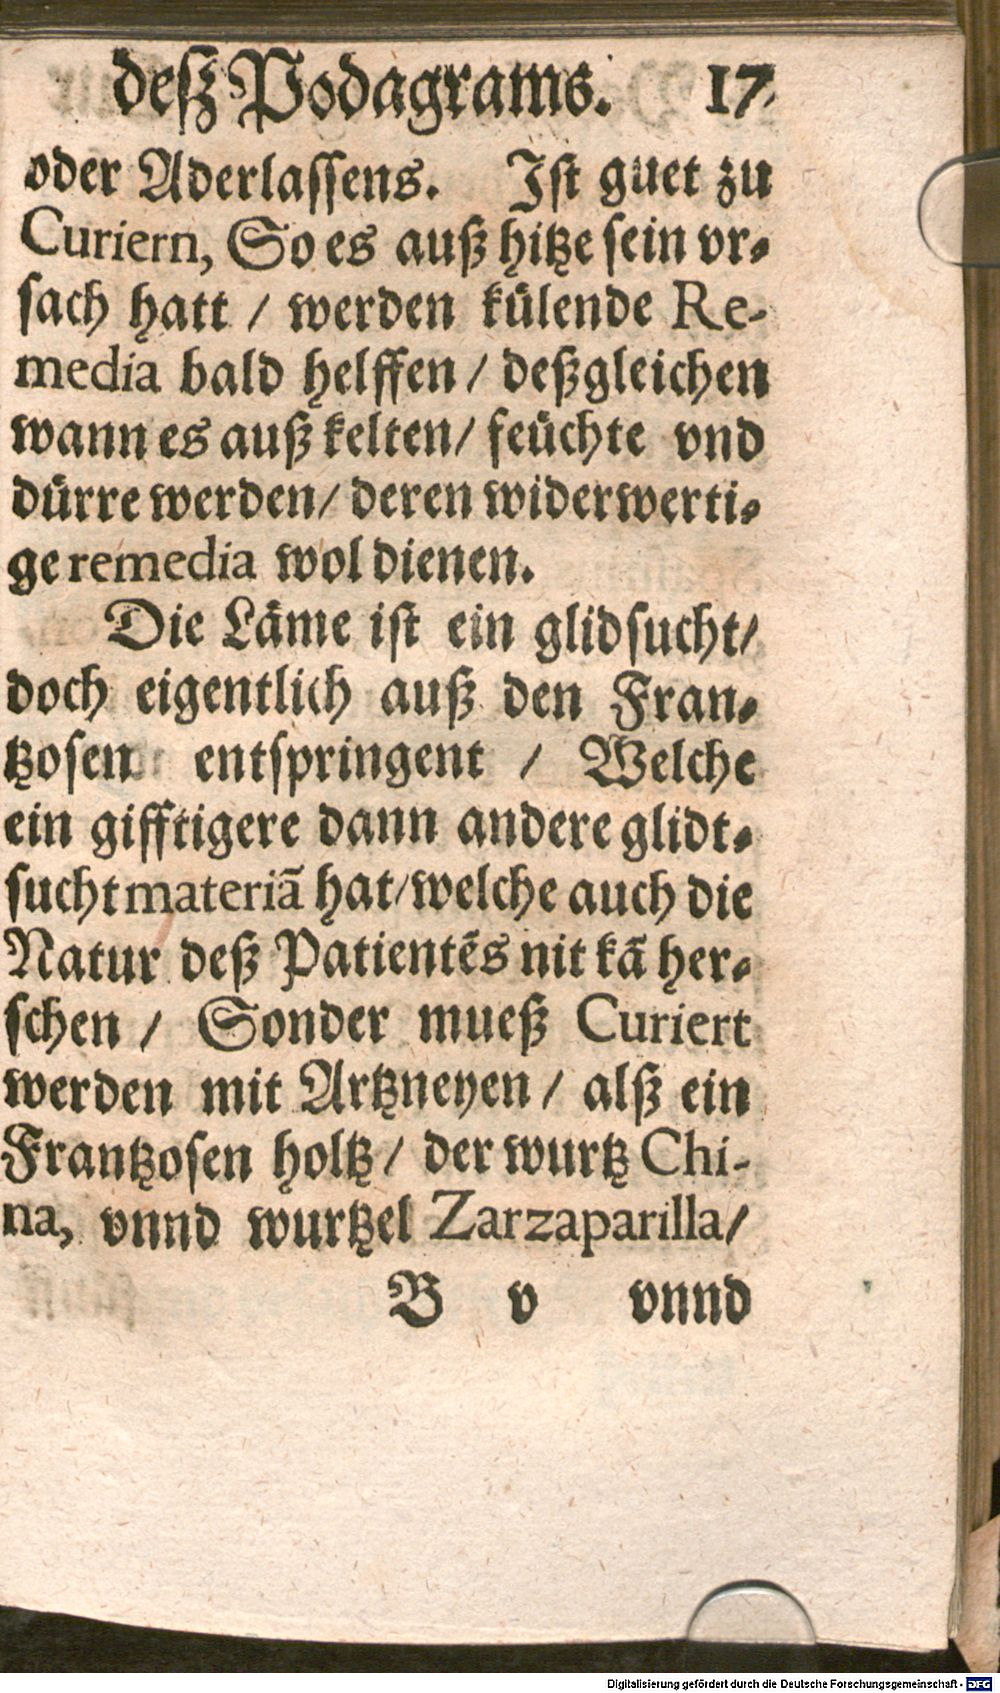 deß Podagrams. 17.
oder Aderlassens. Ist guet zu
Curiern, So es auß hitze sein vr-
sach hatt / werden külende Re-
media bald helffen / deßgleichen
wann es auß kelten / feüchte vnd
dürre werden / deren widerwerti-
ge remedia wol dienen.
Die Läme ist ein glidsucht /
doch eigentlich auß den Fran-
tzosen entspringent / Welche
ein gifftigere dann andere glidt-
sucht materiã hat / welche auch die
Natur deß Patientẽs nit kã her-
schen / Sonder mueß Curiert
werden mit Artzneyen / alß ein
Frantzosen holtz / der wurtz Chi-
na, vnnd wurtzel Zarzaparilla /
B v vnnd
Digitalisierung gefördert durch die Deutsche Forschungsgemeinschaft - DFG